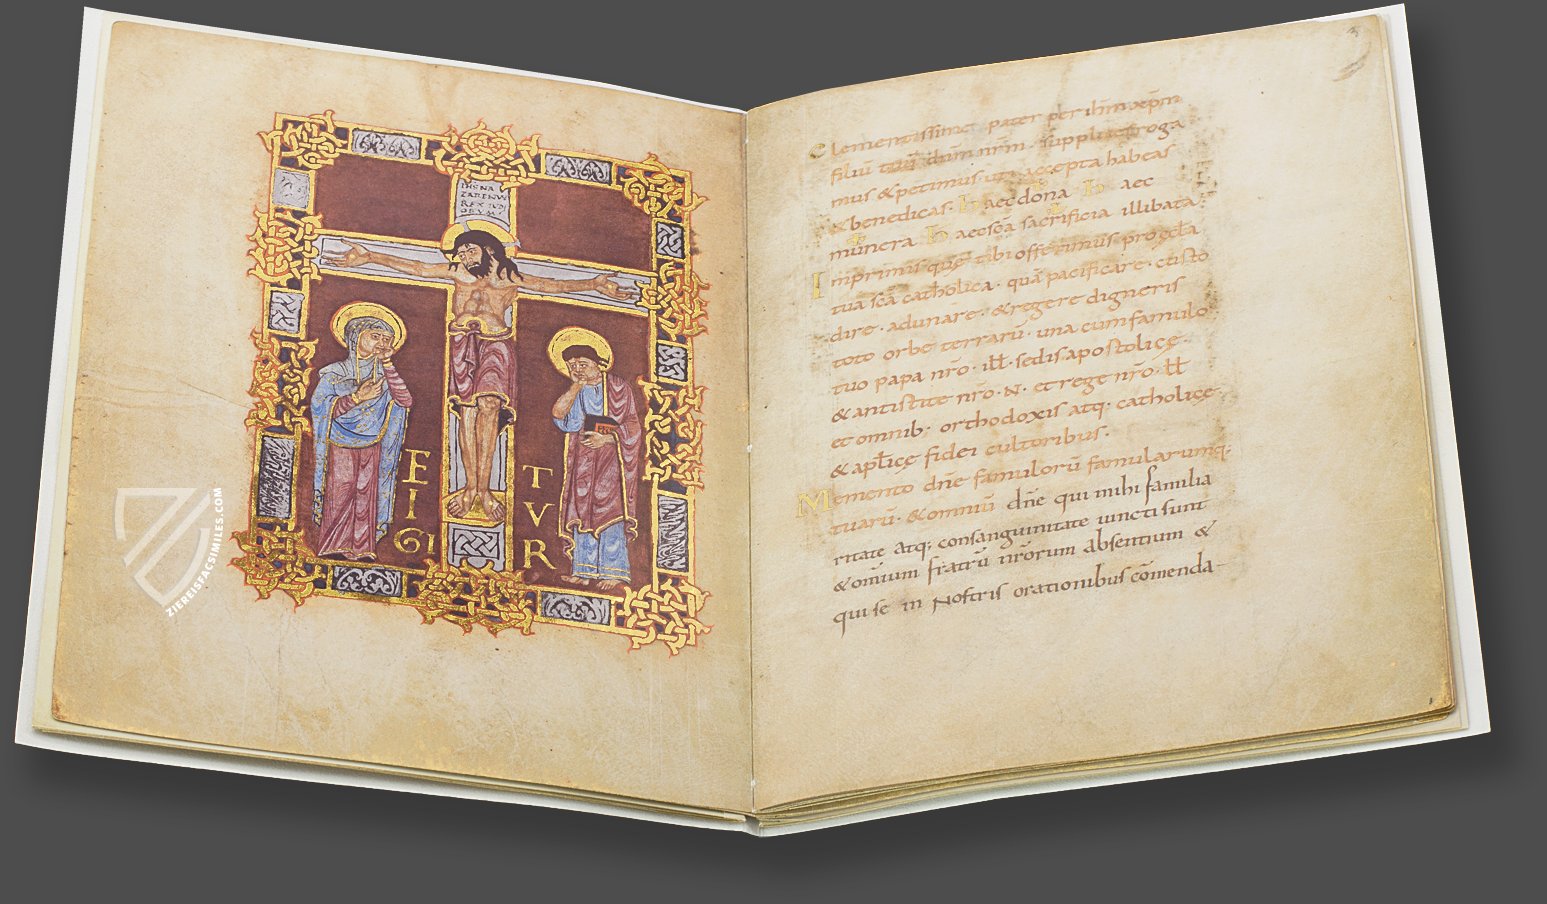 IHS NA
ZARENVS
REX IVD
EORVM
E T
I V
GI R
ZIEREISFACSIMILES.COM
Clementissime pater per ihm xpm
filiū tuū dnm nrm · supplices roga
mus & petimus uti accepta habeas
& benedicas · haec dona · h aec
munera · h aec scā sacrificia illibata ·
Inprimis quę tibi offerimus pro eccła
tua scā catholica · quā pacificare · custo
dire · adunare · & regere digneris
toto orbe terrarū · una cum famulo
tuo papa nr̄o · ill̄ · sedis apostolicę
& antistite nr̄o · N · et rege nr̄o · ill̄
et omnib; orthodoxis atq; catholicę ·
& aplicę fidei cultoribus ·
Memento dn̄e famulorū famularumq;
tuarū · & omniū dn̄e qui mihi familia
ritate atq; consanguinitate iuncti sunt
& omium fratrū nrōrum absentium &
qui se in Nostris orationibus cōmenda-